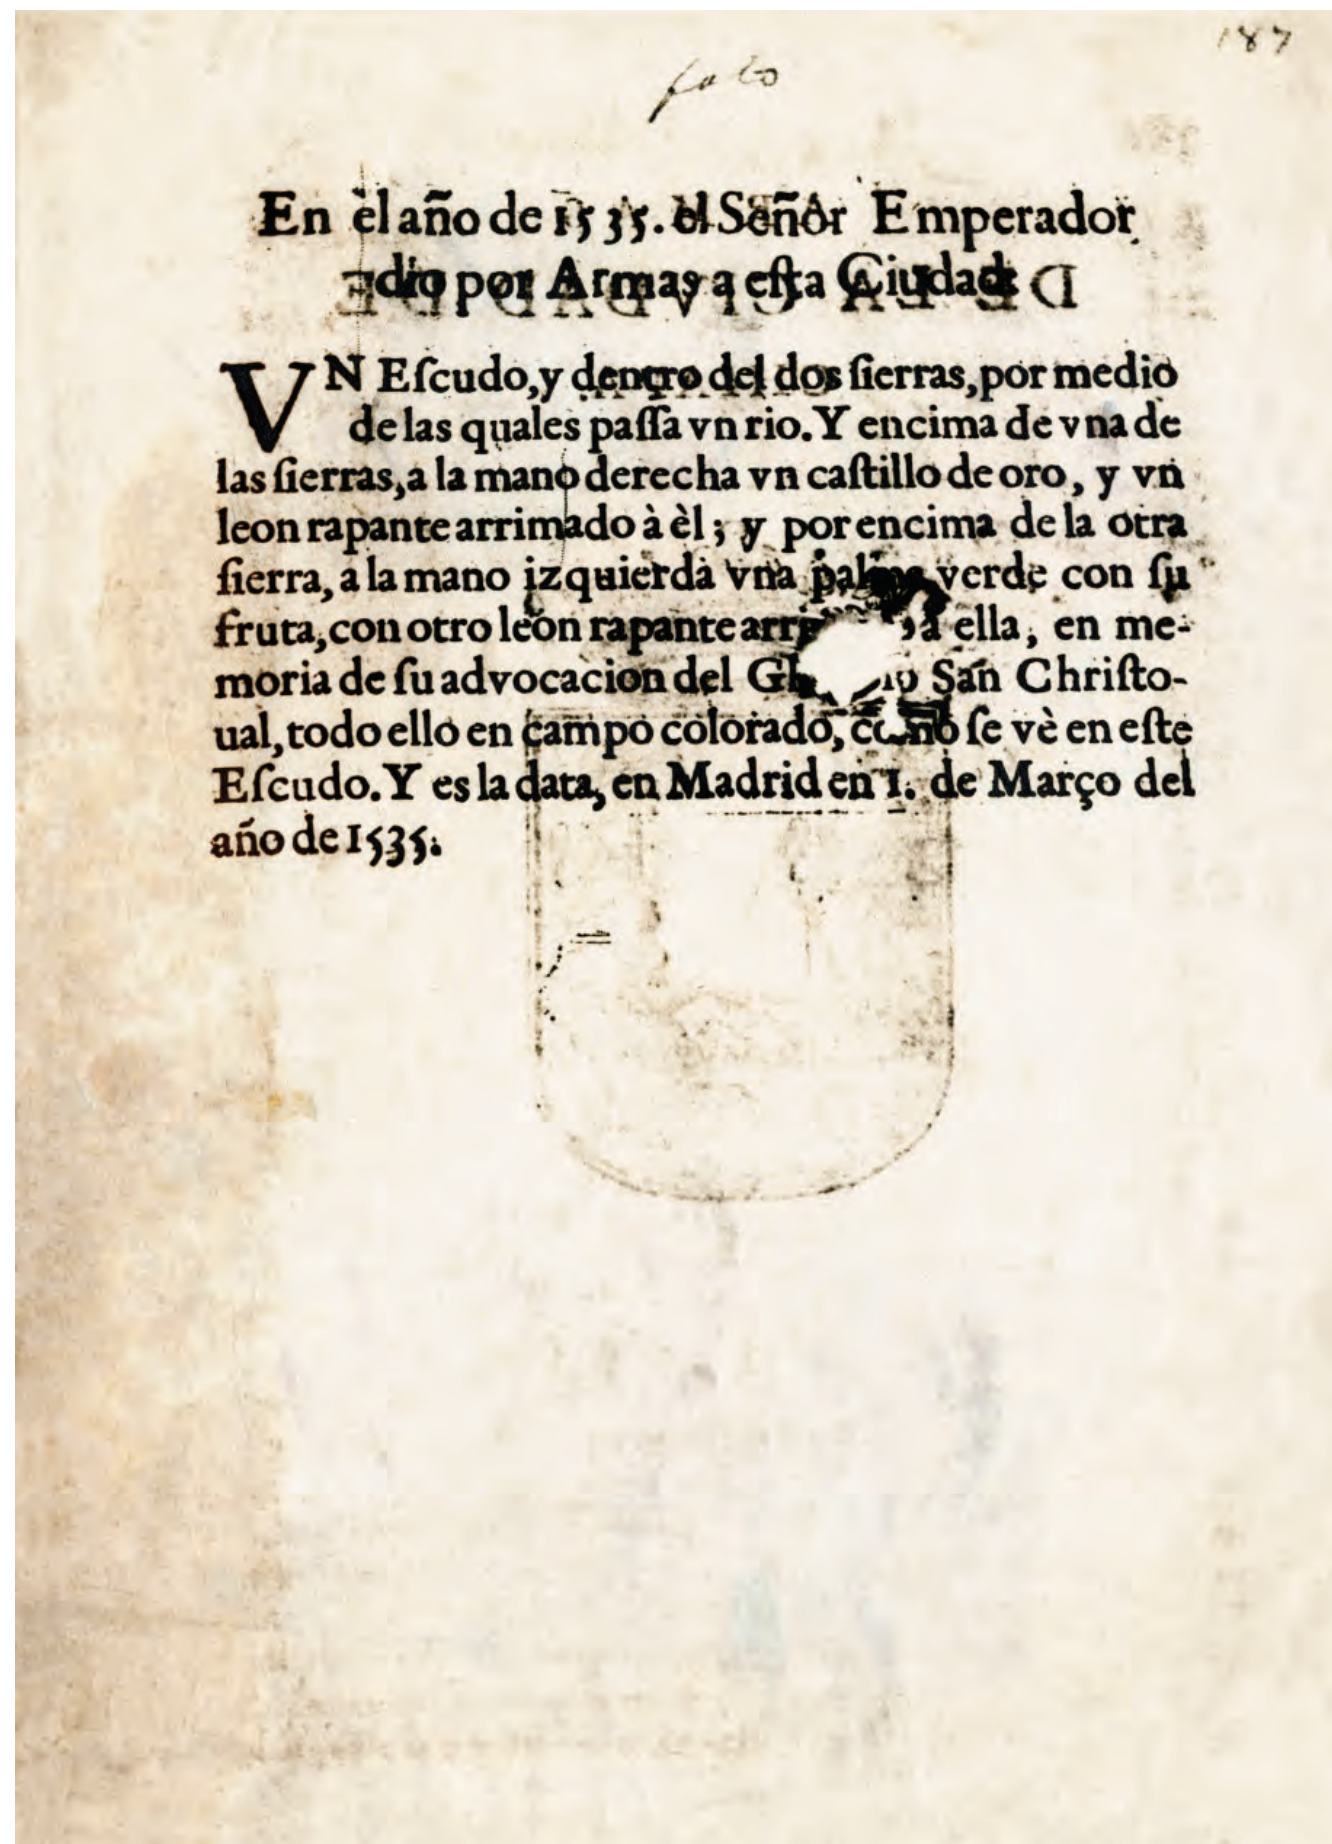 187
En èl año de 1535. el Señor Emperador
dio por Armas a eſta Ciudad
VN Eſcudo, y dentro del dos ſierras, por medio
de las quales paſſa vn rio. Y encima de vna de
las ſierras, a la mano derecha vn caſtillo de oro, y vn
leon rapante arrimado à èl; y por encima de la otra
ſierra, a la mano izquierda vna palma verde con ſu
fruta, con otro leon rapante a ella, en me-
moria de ſu advocacion del San Chriſto-
ual, todo ello en campo colorado, como ſe vè en eſte
Eſcudo. Y es la data, en Madrid en 1. de Março del
año de 1535.